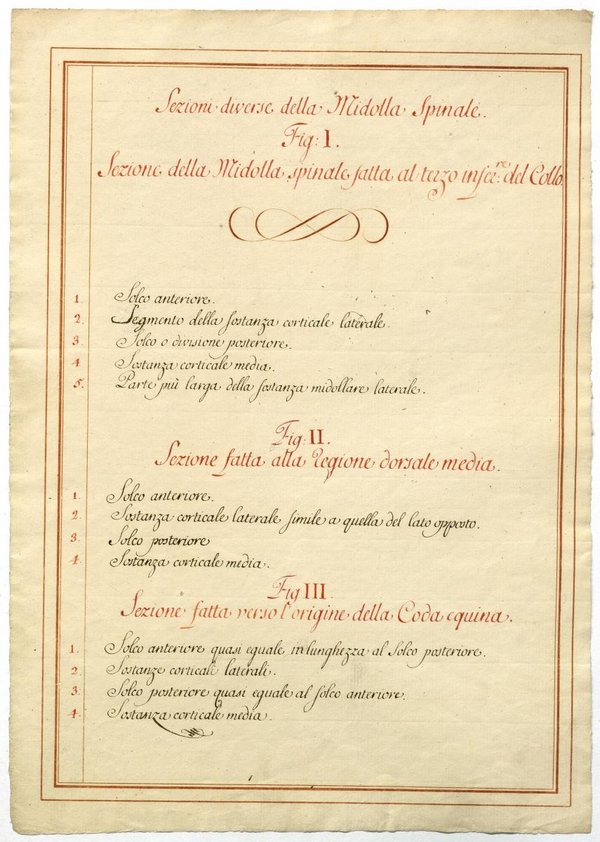 Sezioni diverse della Midolla Spinale.
Fig: I.
Sezione della Midolla spinale fatta al terzo infer.re del Collo
1. Solco anteriore.
2. Segmento della sostanza corticale laterale.
3. Solco o divisione posteriore.
4. Sostanza corticale media.
5. Parte più larga della sostanza midollare laterale.
Fig: II.
Sezione fatta alla Regione dorsale media.
1. Solco anteriore.
2. Sostanza corticale laterale simile a quella del lato opposto.
3. Solco posteriore
4. Sostanza corticale media.
Fig III
Sezione fatta verso l'origine della Coda equina.
1. Solco anteriore quasi eguale in lunghezza al Solco posteriore.
2. Sostanze corticali laterali.
3. Solco posteriore quasi eguale al solco anteriore.
4. Sostanza corticale media.